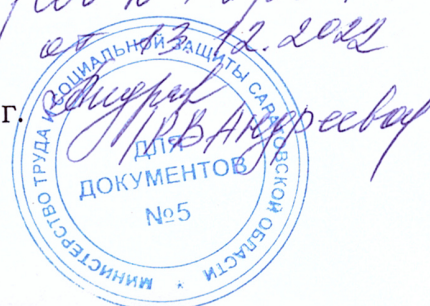 от 13.12.2022
г.
Р В Андреева
МИНИСТЕРСТВО ТРУДА И СОЦИАЛЬНОЙ ЗАЩИТЫ САРАТОВСКОЙ ОБЛАСТИ
*
ДЛЯ
ДОКУМЕНТОВ
№5